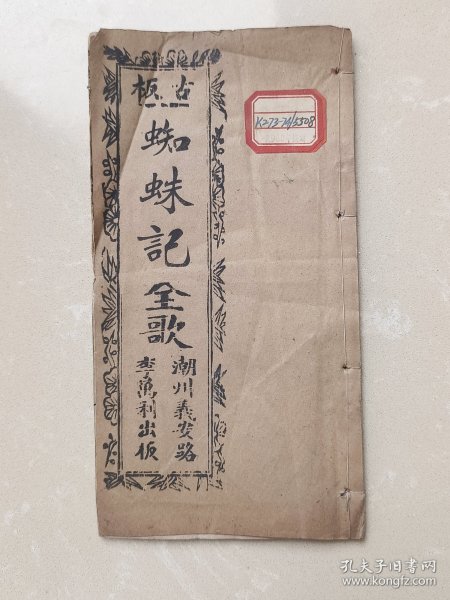 古板
蜘蛛記
全歌
潮州義安路
李萬利出板
K273-74/5508
孔夫子旧书网
www.kongfz.com